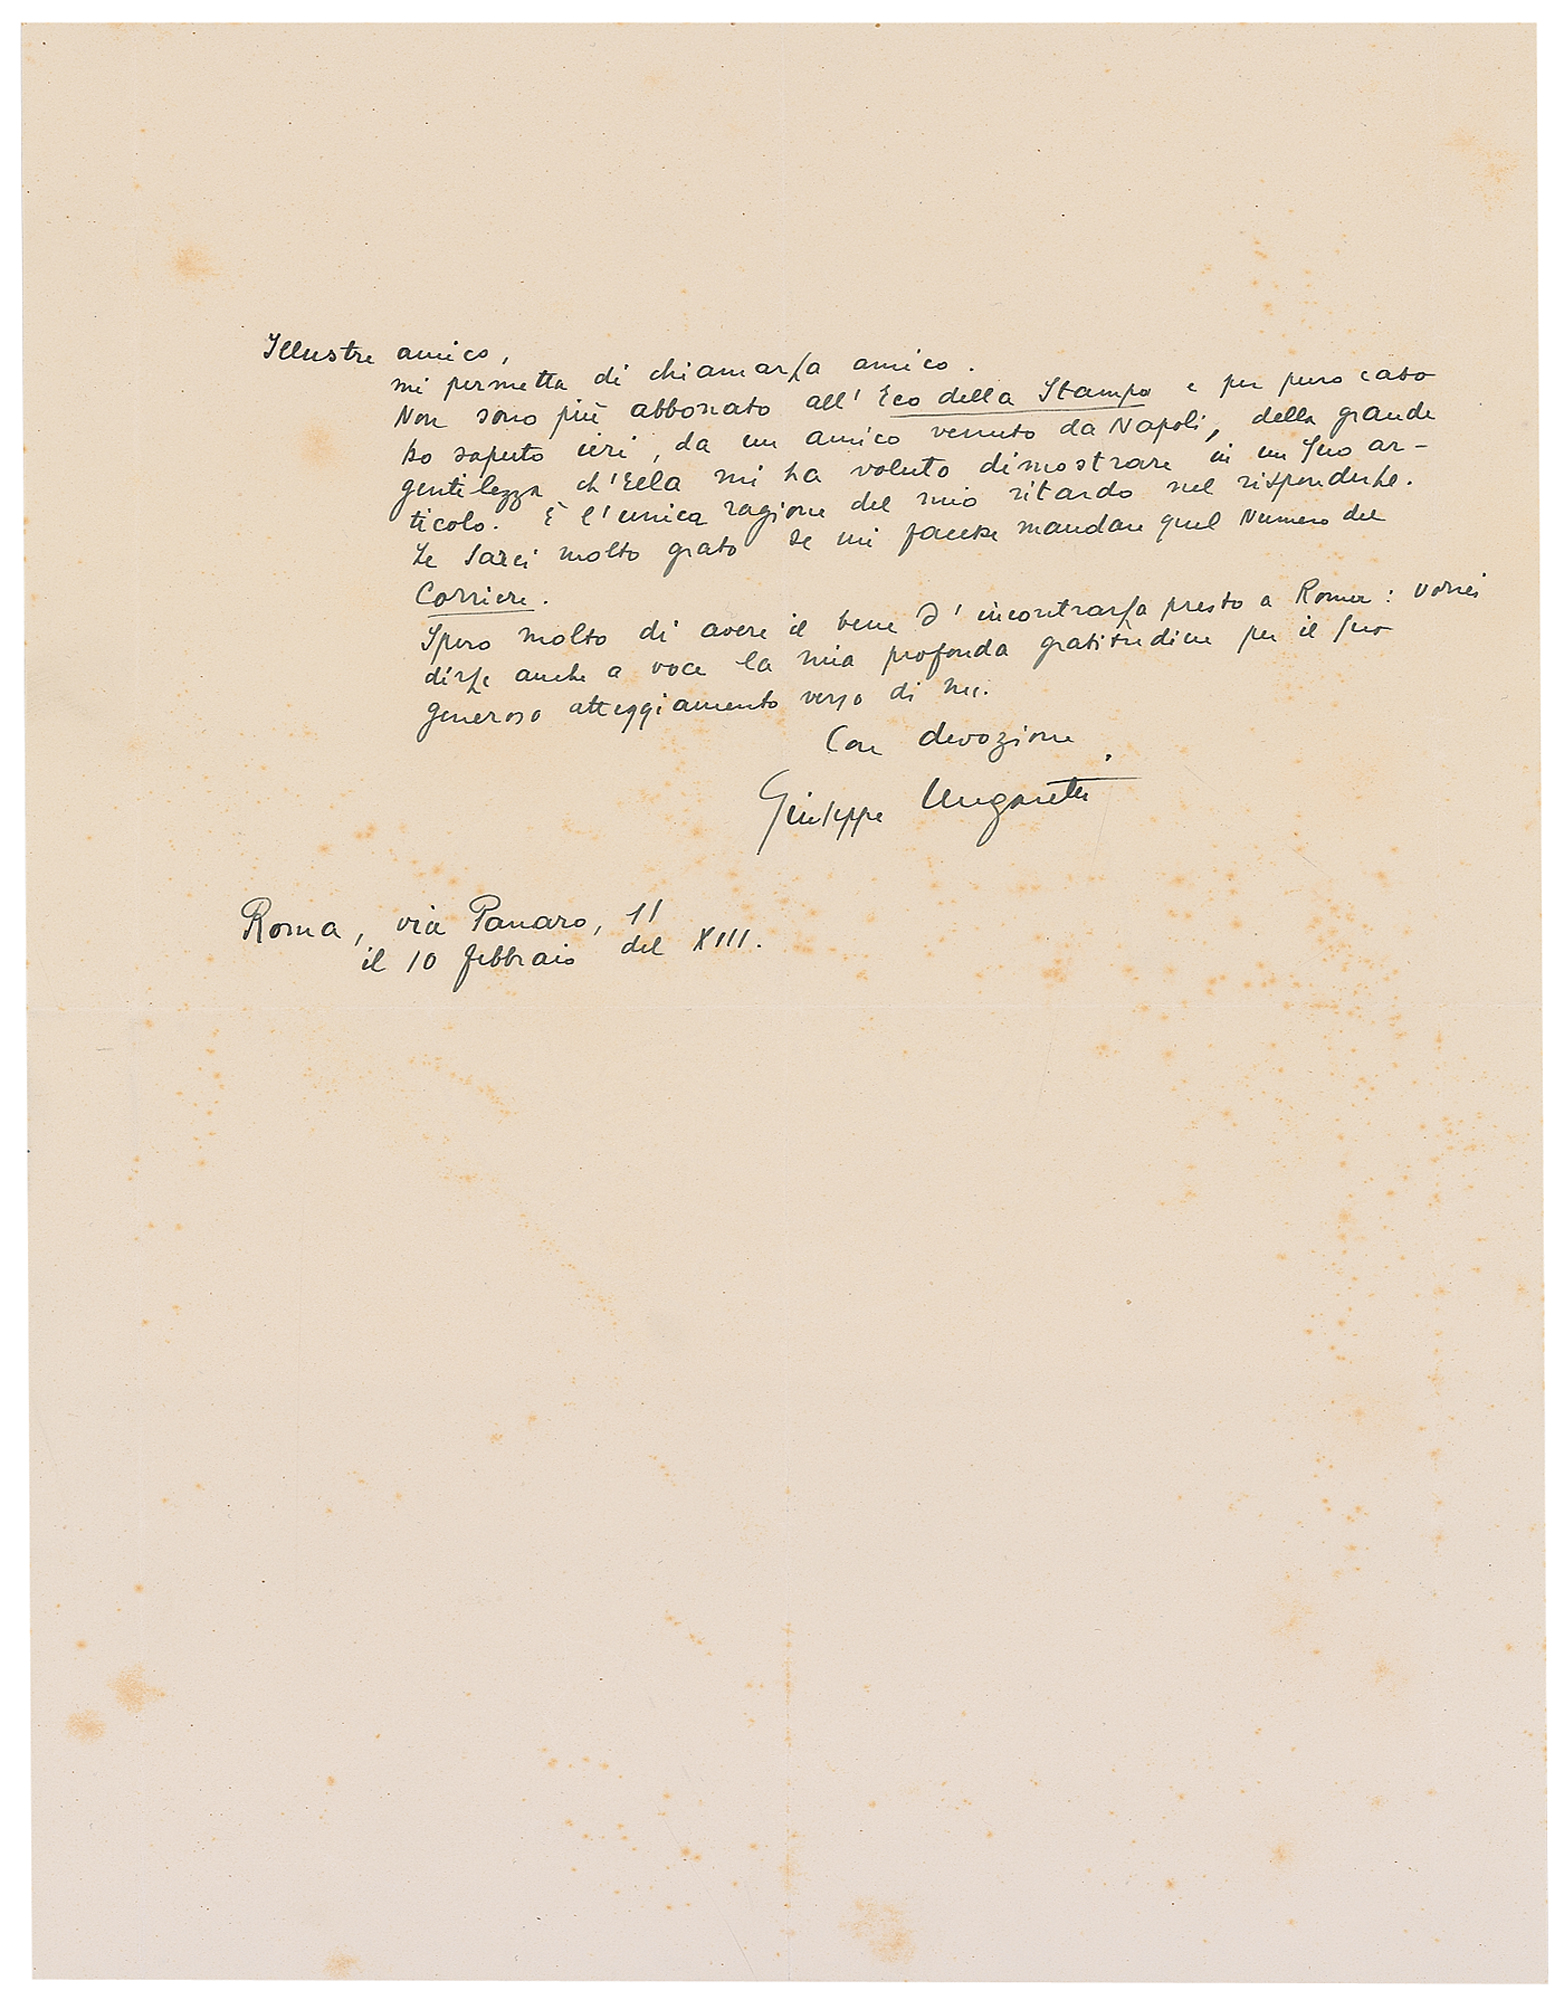 Illustre amico,
mi permetta di chiamarLa amico.
Non sono più abbonato all'Eco della Stampa e per puro caso
ho saputo ieri, da un amico venuto da Napoli, della grande
gentilezza ch'Ella mi ha voluto dimostrare in un Suo ar-
ticolo. È l'unica ragione del mio ritardo nel risponderLe.
Le sarei molto grato se mi facesse mandare quel Numero del
Corriere.
Spero molto di avere il bene d'incontrarLa presto a Roma: vorrei
dirLe anche a voce la mia profonda gratitudine per il Suo
generoso atteggiamento verso di me.
Con devozione.
Giuseppe Ungaretti
Roma, via Panaro, 11
il 10 febbraio del XIII.